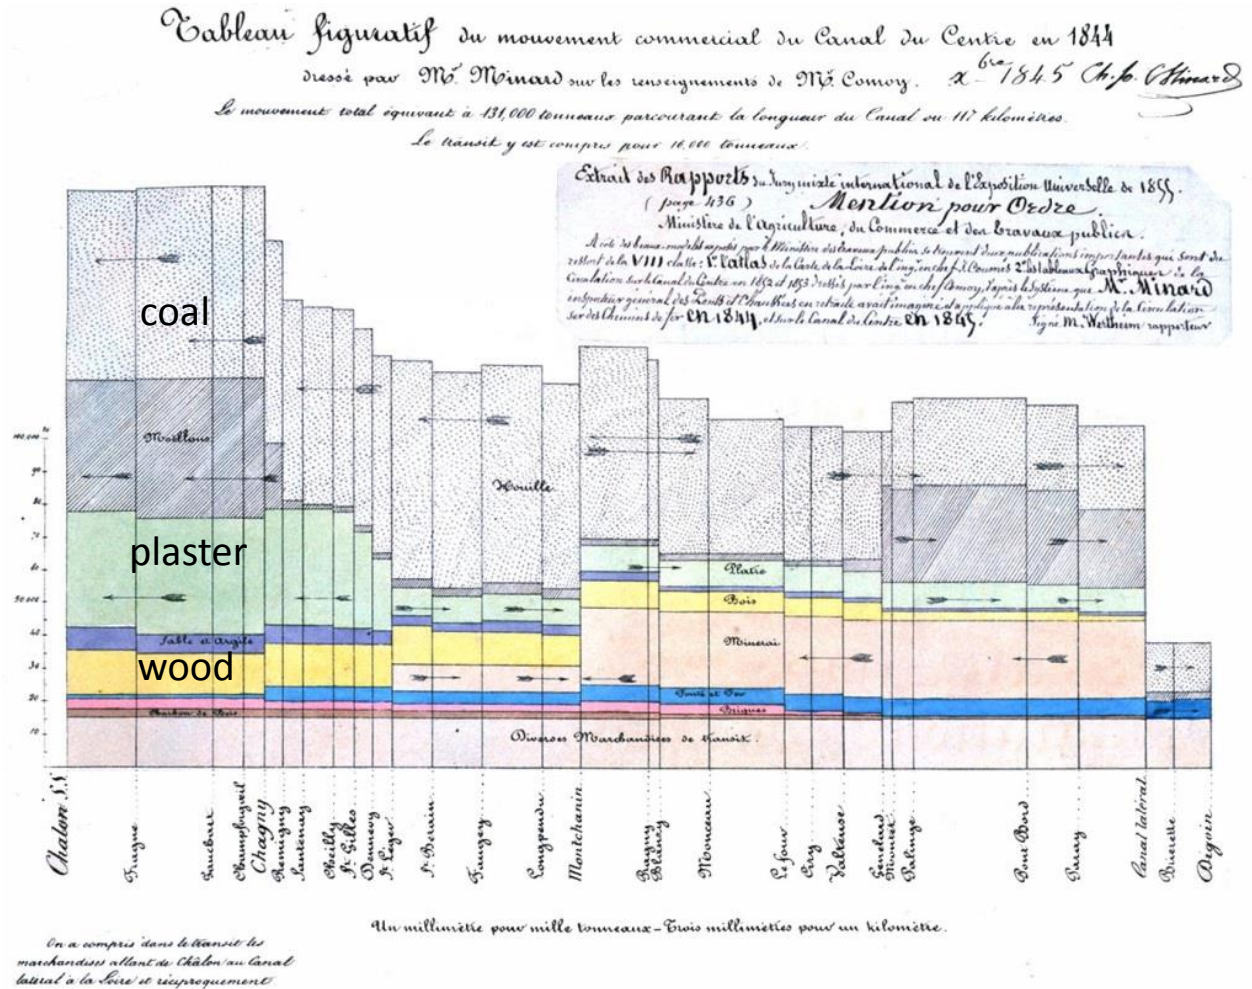 Tableau figuratif du mouvement commercial du Canal du Centre en 1844
dressé par Mr. Minard sur les renseignements de Mr. Comoy. xbre 1845 Ch. J. Minard
Le mouvement total équivaut à 131,000 tonneaux parcourant la longueur du Canal ou 117 kilomètres.
Le transit y est compris pour 16,000 tonneaux.
Extrait des Rapports du Jury mixte international de l'Exposition Universelle de 1855.
( page 436 ) Mention pour Ordre.
Ministère de l'Agriculture, du Commerce et des Travaux publics.
A côté des beaux modèles exposés par le Ministère des travaux publics se trouvent deux publications importantes qui sont du
ressort de la VIII classe: 1º l'atlas de la Carte de la Loire de l'ing. en chef Coumes 2º les tableaux Graphiques de la
Circulation sur le Canal du Centre en 1852 et 1853 dressés par l'ing. en chef Comoy, d'après le système que Mr. Minard
inspecteur général des Ponts et Chaussées en retraite avait imaginé et appliqué à la représentation de la Circulation
sur des Chemins de fer en 1844, et sur le Canal du Centre en 1845. Signé M. Wertheim rapporteur
coal
Moëllons
100,000
90
80
Houille
70
plaster
60
Platre
50,000
Bois
40
Sable et Argile
Minerai
30
wood
20
Fonte et Fer
Charbon de Bois
Briques
10
Diverses Marchandises de transit.
Chalon S.S.
Fragne
Champforgeuil
Chagny
Remigny
Santenay
Cheilly
St Gilles
Dennevy
St Léger
St Berain
Longpendu
Montchanin
Blanzy
Monceau
Ciry
Genelard
Montet
Palinge
Paray
Canal latéral
Digoin
Un millimètre pour mille tonneaux – Trois millimètres pour un kilomètre.
On a compris dans le transit les
marchandises allant de Châlon au Canal
latéral à la Loire et réciproquement